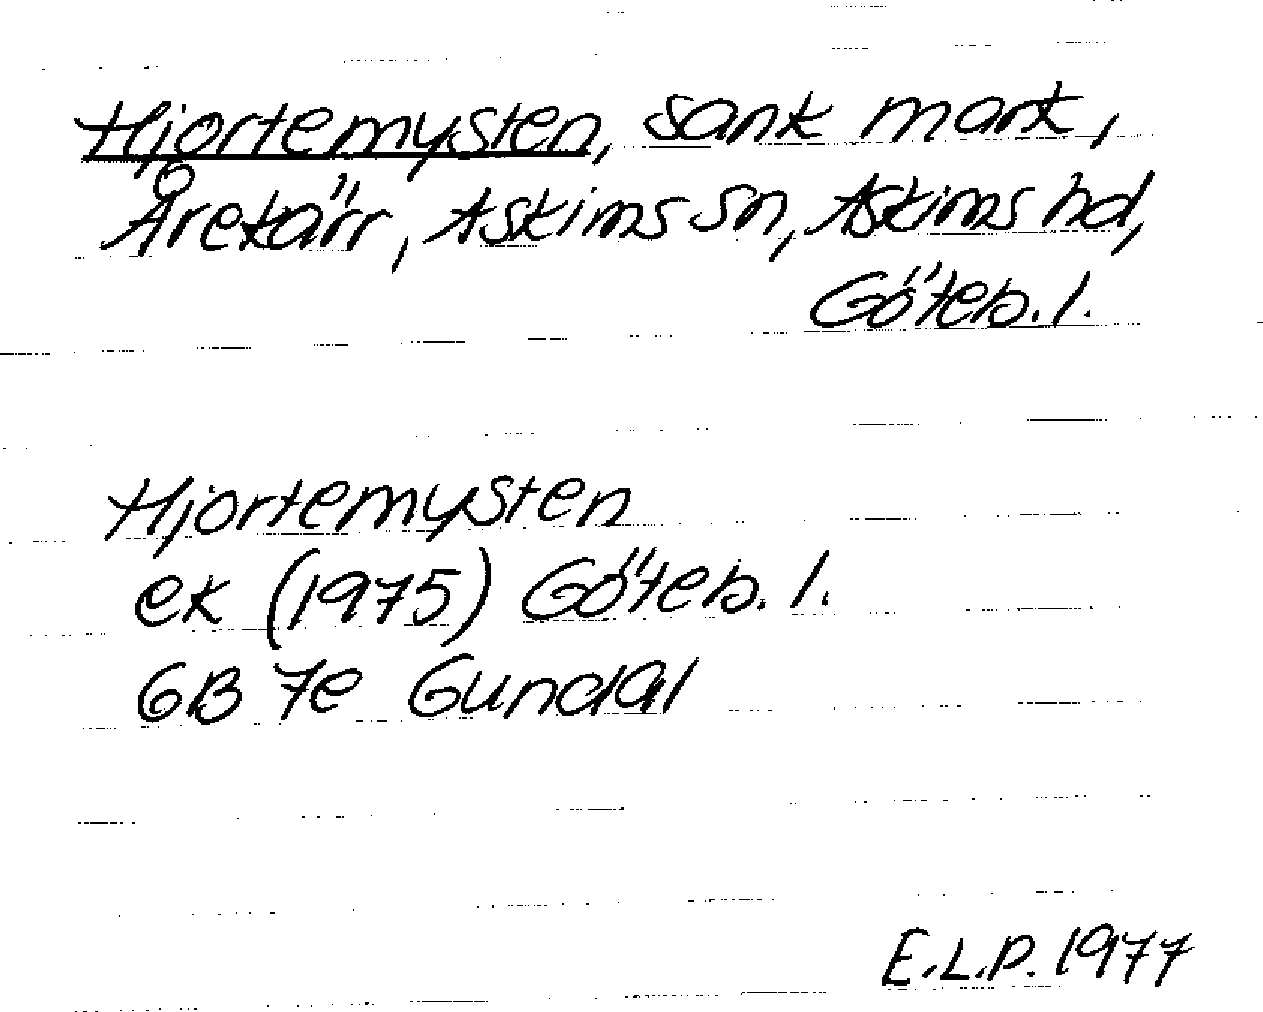 Hjortemysten, sank mark,
Årekärr, Askims sn, Askims hd,
Göteb. l.
Hjortemysten
ek (1975) Göteb. l.
GB 7e Gundal
E.L.P. 1977